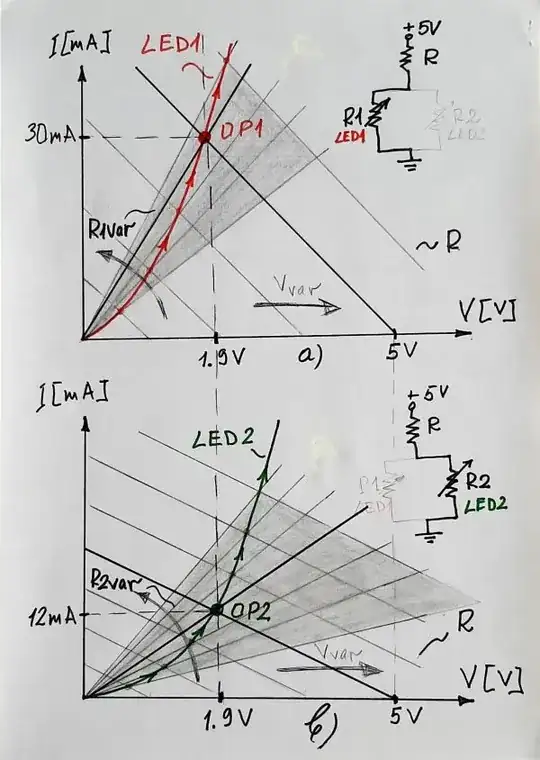 I[mA]
LED1
+5V
R
R1
LED1
R2
LED2
30mA
OP1
R1var
~R
Vvar
V[V]
1.9V
a)
5V
I[mA]
LED2
+5V
R
R1
LED1
R2
LED2
R2var
12mA
OP2
R
Vvar
V[V]
1.9V
b)
5V